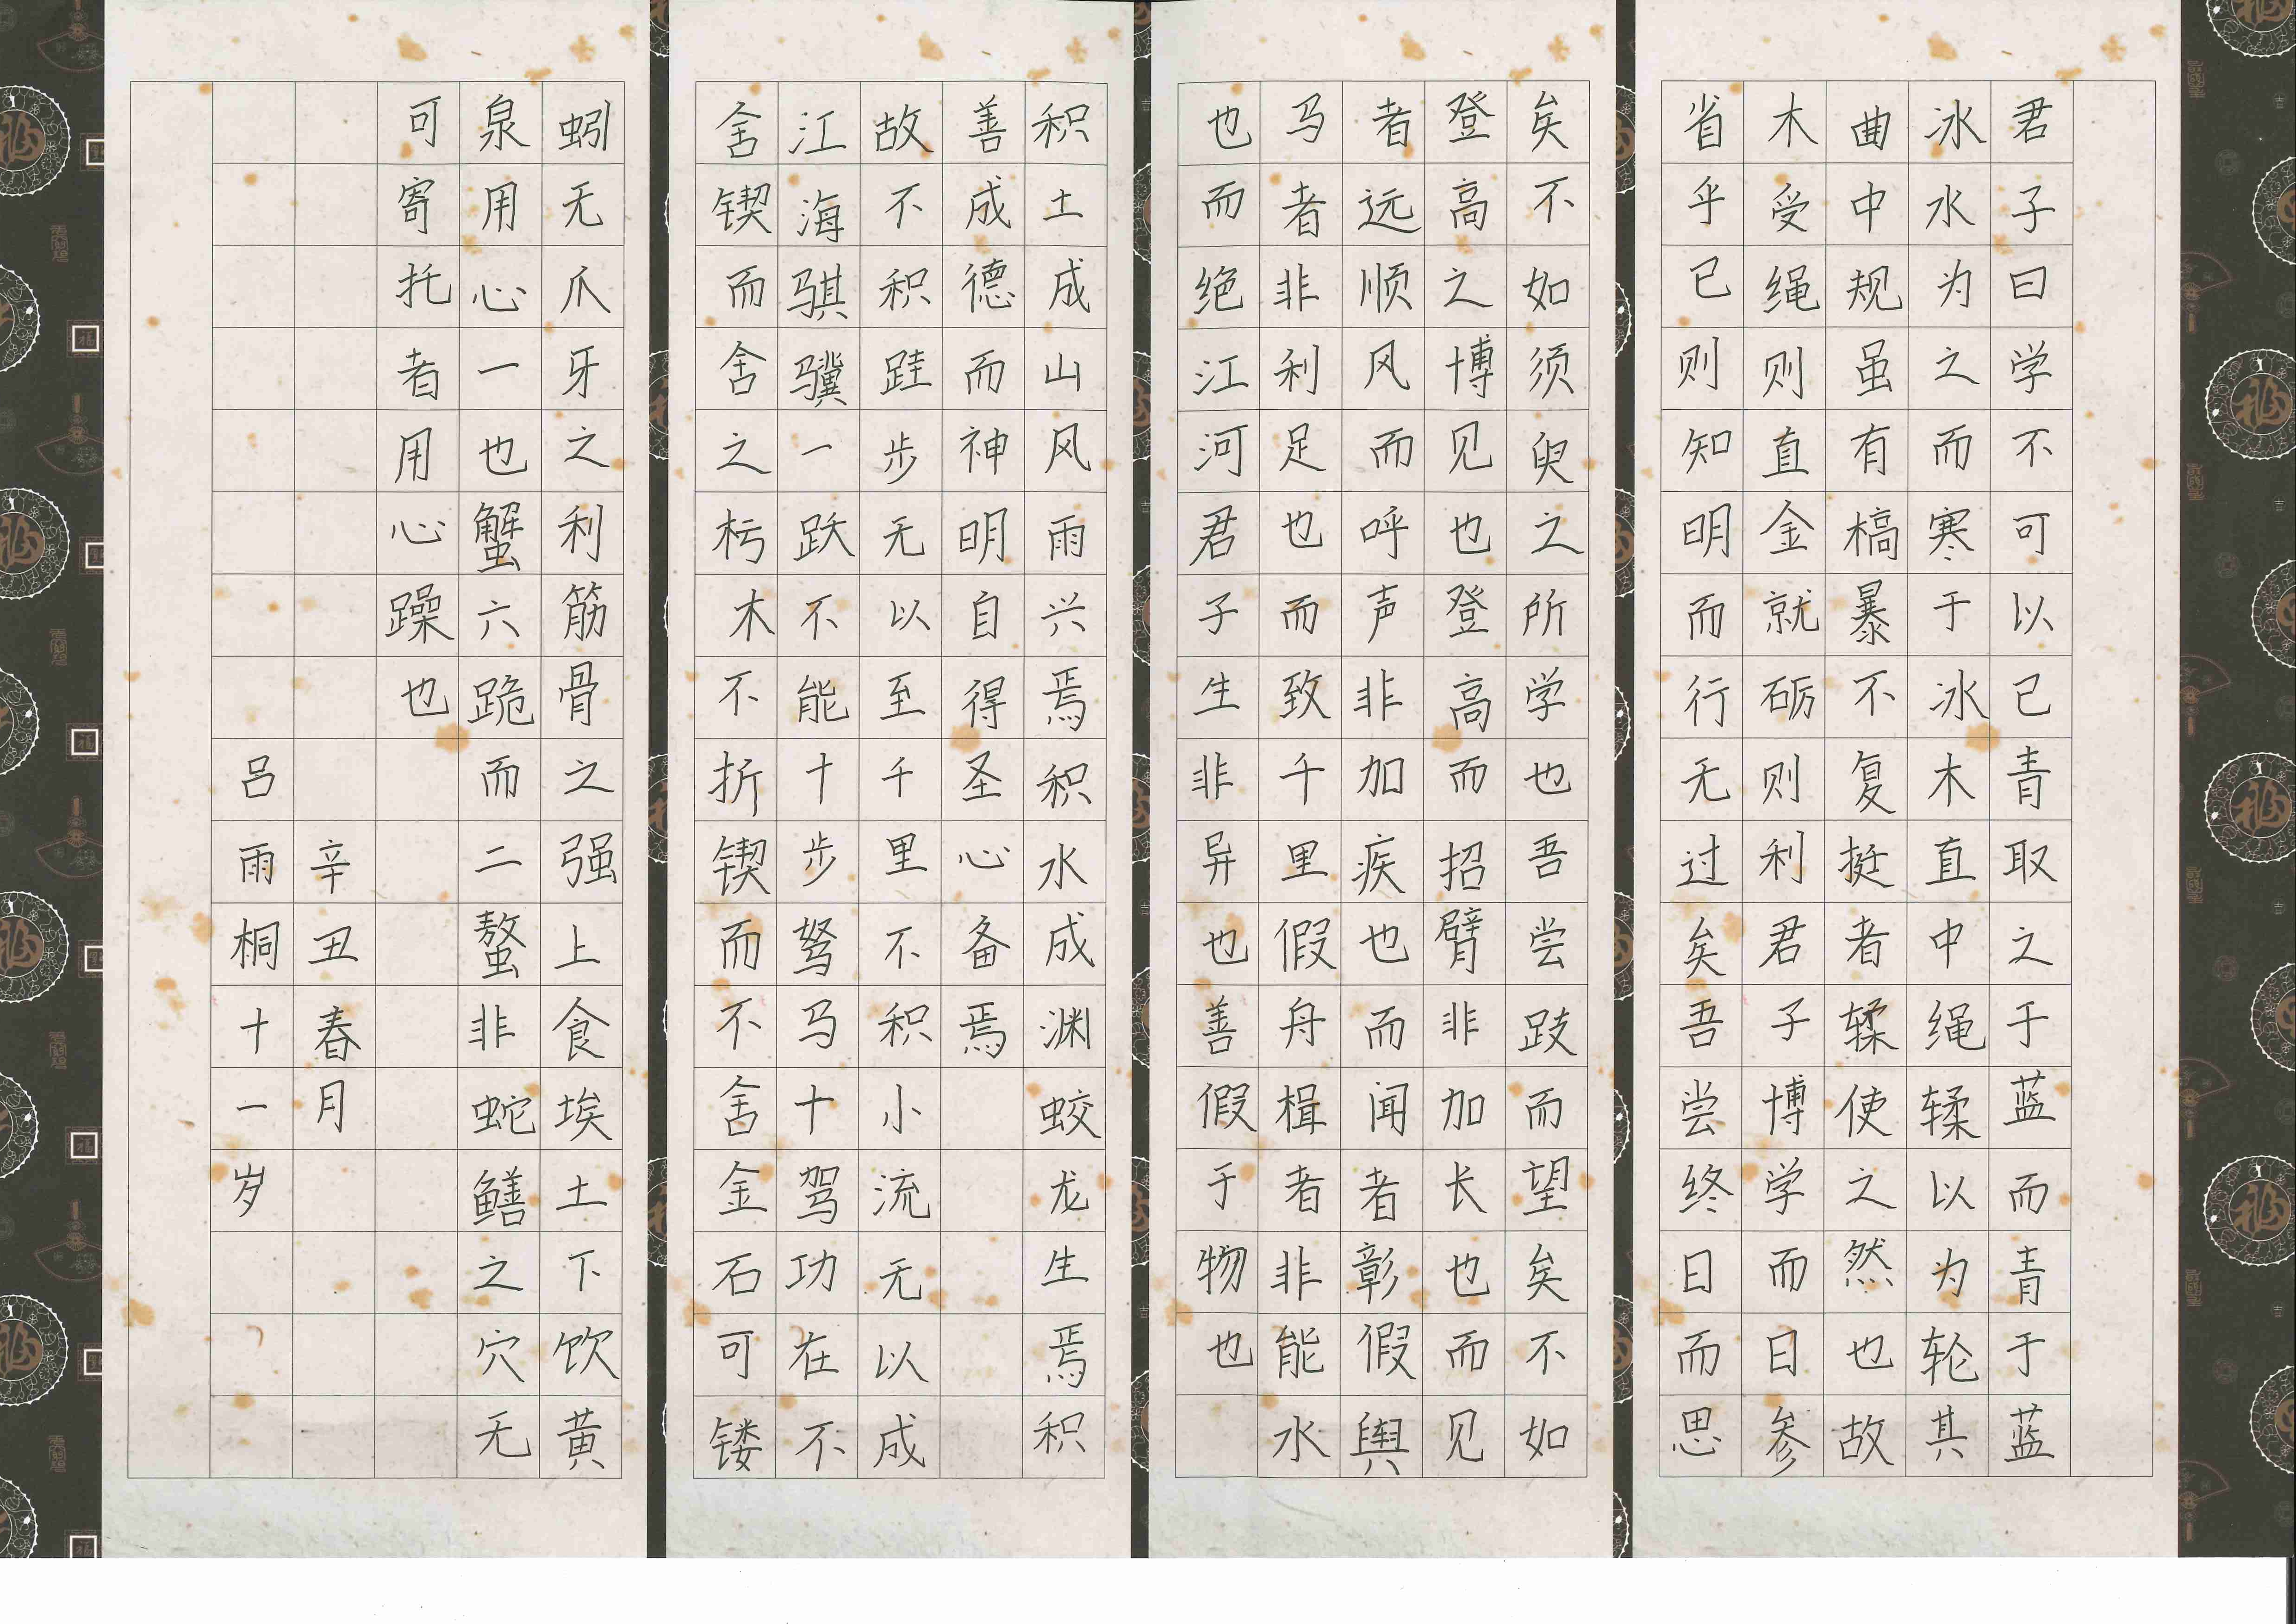 君子曰学不可以已青取之于蓝而青于蓝
冰水为之而寒于冰木直中绳𫐓以为轮其
曲中规虽有槁暴不复挺者𫐓使之然也故
木受绳则直金就砺则利君子博学而日参
省乎己则知明而行无过矣吾尝终日而思
矣不如须臾之所学也吾尝跂而望矣不如
登高之博见也登高而招臂非加长也而见
者远顺风而呼声非加疾也而闻者彰假舆
马者非利足也而致千里假舟楫者非能水
也而绝江河君子生非异也善假于物也
积土成山风雨兴焉积水成渊蛟龙生焉积
善成德而神明自得圣心备焉
故不积跬步无以至千里不积小流无以成
江海骐骥一跃不能十步驽马十驾功在不
舍锲而舍之朽木不折锲而不舍金石可镂
蚓无爪牙之利筋骨之强上食埃土下饮黄
泉用心一也蟹六跪而二螯非蛇鳝之穴无
可寄托者用心躁也
辛丑春月
吕雨桐十一岁